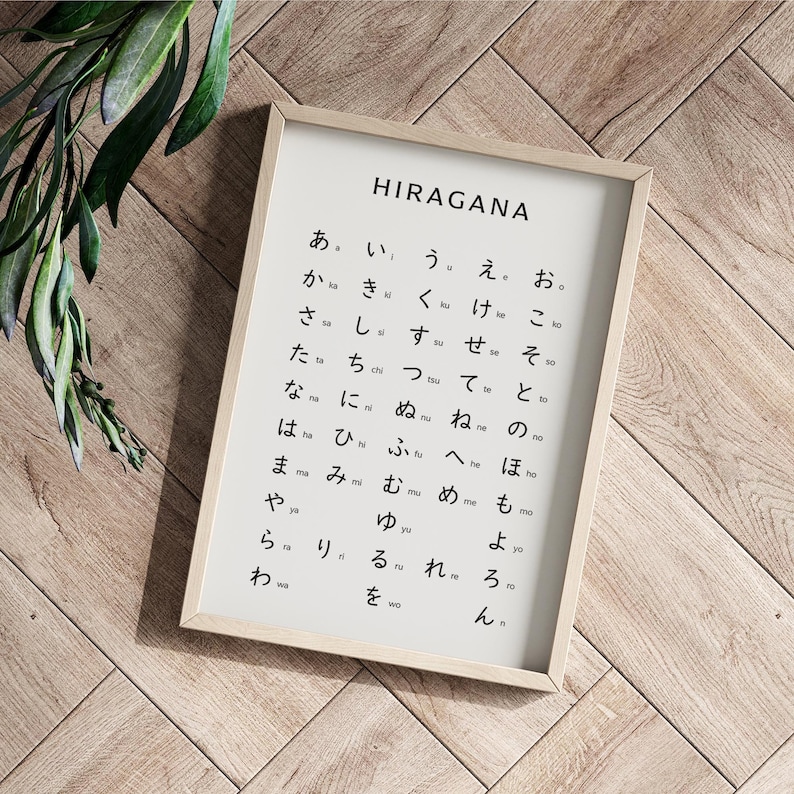 HIRAGANA
あ a い i う u え e お o
か ka き ki く ku け ke こ ko
さ sa し si す su せ se そ so
た ta ち chi つ tsu て te と to
な na に ni ぬ nu ね ne の no
は ha ひ hi ふ fu へ he ほ ho
ま ma み mi む mu め me も mo
や ya ゆ yu よ yo
ら ra り ri る ru れ re ろ ro
わ wa を wo ん n